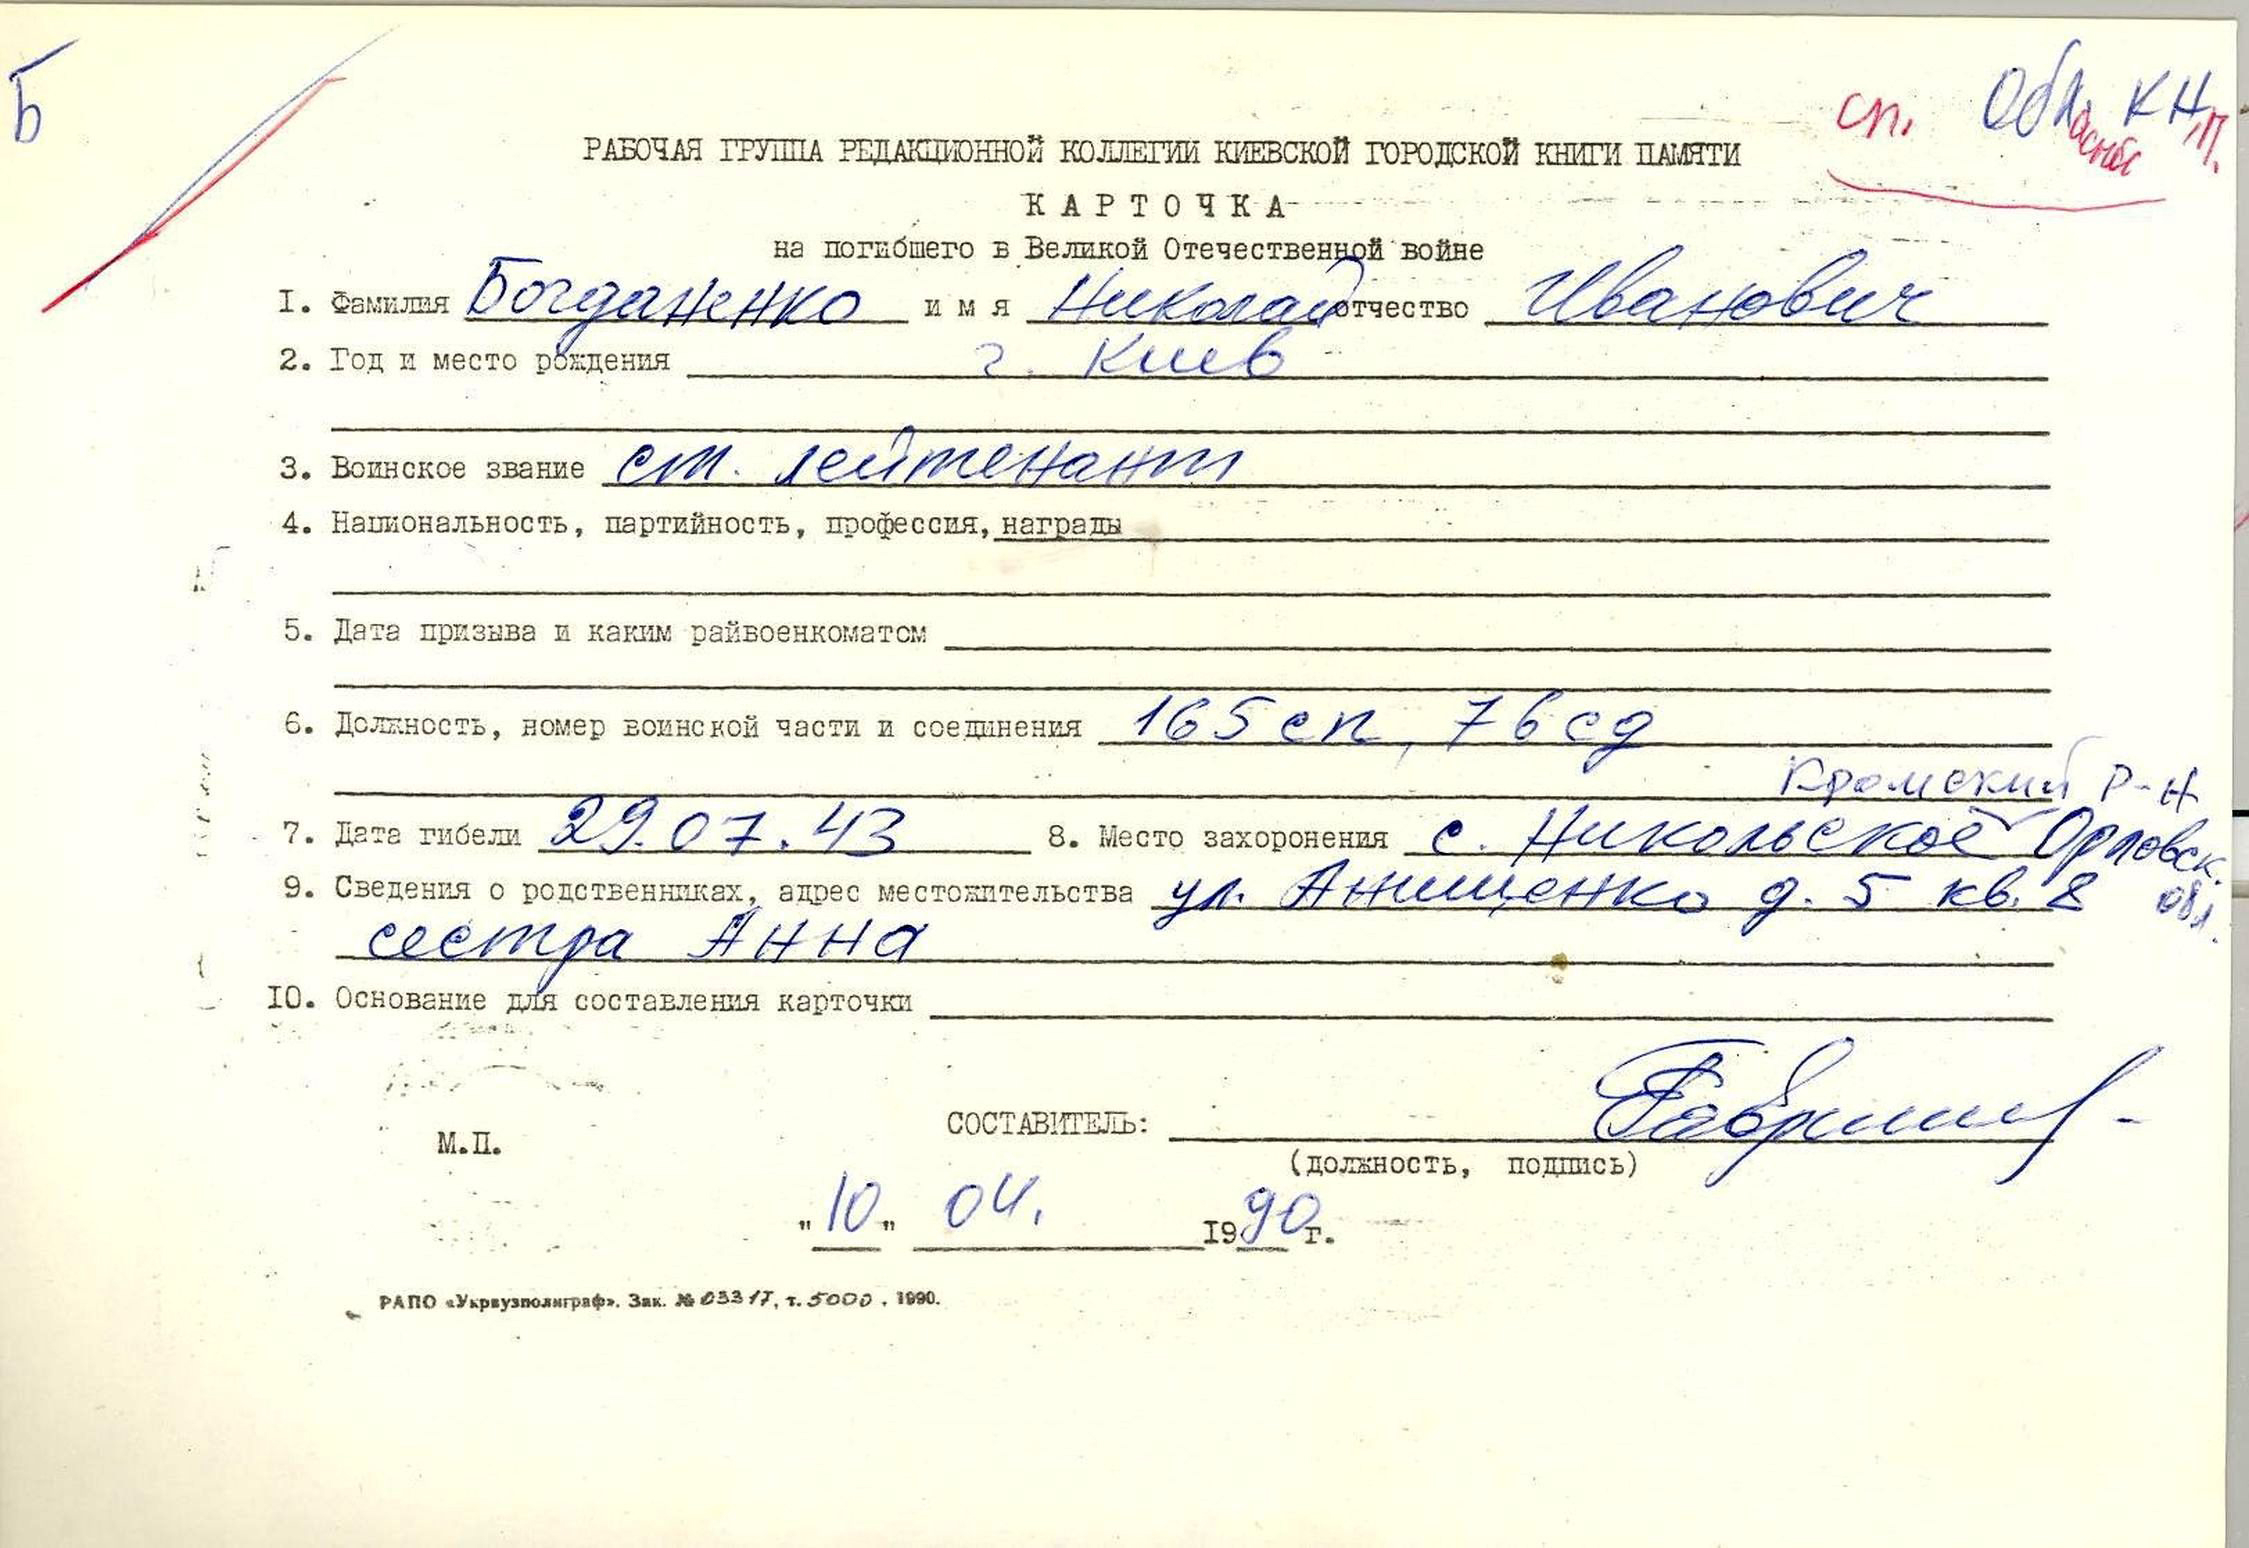 Б
сп. Обл. КН.П.
асной
РАБОЧАЯ ГРУППА РЕДАКЦИОННОЙ КОЛЛЕГИИ КИЕВСКОЙ ГОРОДСКОЙ КНИГИ ПАМЯТИ
КАРТОЧКА
на погибшего в Великой Отечественной войне
I. Фамилия Богданенко имя Николай отчество Иванович
2. Год и место рождения г. Киев
3. Воинское звание ст. лейтенант
4. Национальность, партийность, профессия, награды
5. Дата призыва и каким райвоенкоматом
6. Должность, номер воинской части и соединения 165 сп, 76 сд
Кромский р-н
7. Дата гибели 29.07.43 8. Место захоронения с. Никольское Орловск. обл.
9. Сведения о родственниках, адрес местожительства ул. Анищенко д. 5 кв. 8
сестра Анна
I0. Основание для составления карточки
СОСТАВИТЕЛЬ:
М.П.
(должность, подпись)
"10" 04. I990г.
РАПО «Укрвузполиграф». Зак. № 03317, т. 5000. 1990.